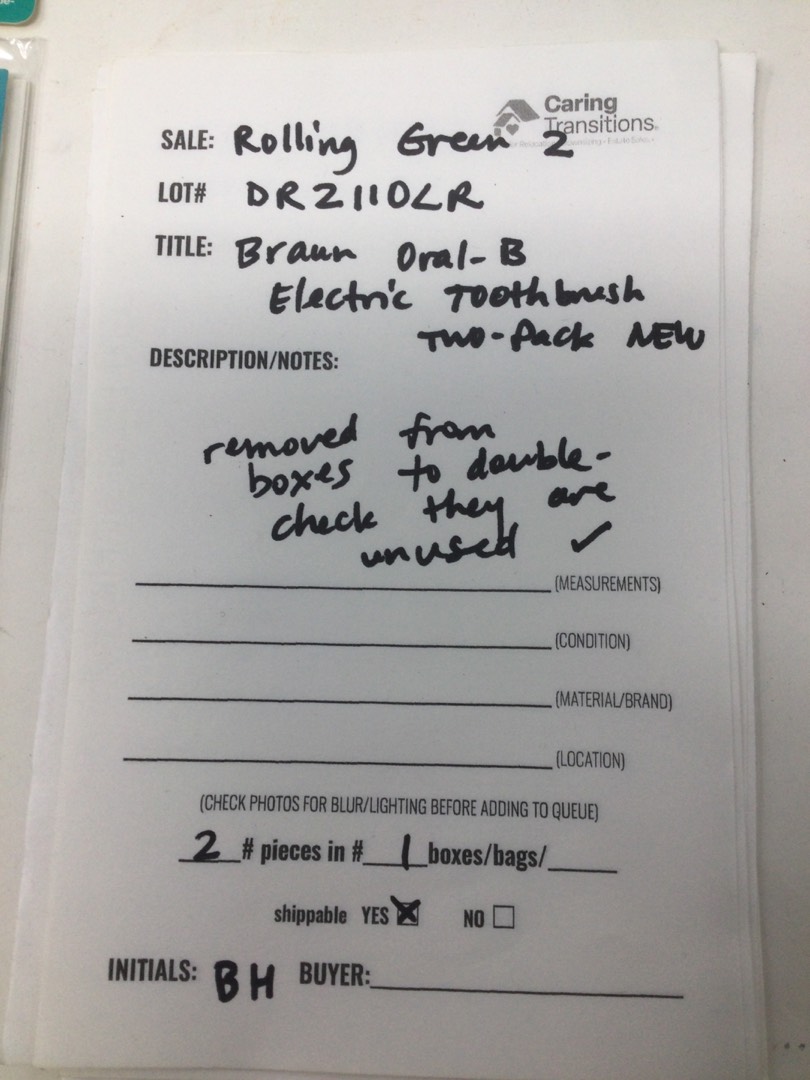 Caring
Transitions®
SALE: Rolling Green 2
LOT# DR2110LR
TITLE: Braun Oral-B
Electric Toothbrush
Two-Pack NEW
DESCRIPTION/NOTES:
removed from
boxes to double-
check they are
unused ✓
(MEASUREMENTS)
(CONDITION)
(MATERIAL/BRAND)
(LOCATION)
(CHECK PHOTOS FOR BLUR/LIGHTING BEFORE ADDING TO QUEUE)
2 # pieces in # 1 boxes/bags/
shippable YES ☒ NO ☐
INITIALS: BH BUYER: